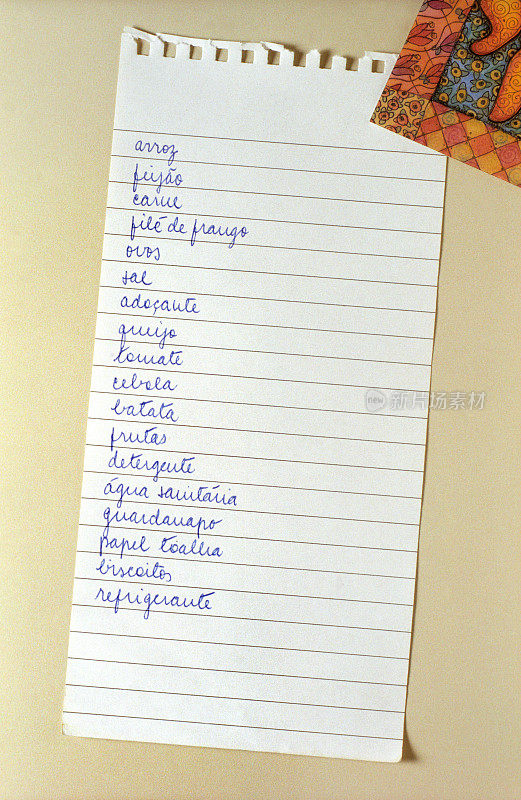 arroz
feijão
carne
filé de frango
ovos
sal
adoçante
queijo
tomate
cebola
batata
frutas
detergente
água sanitária
guardanapo
papel toalha
biscoitos
refrigerante
new 新片场素材